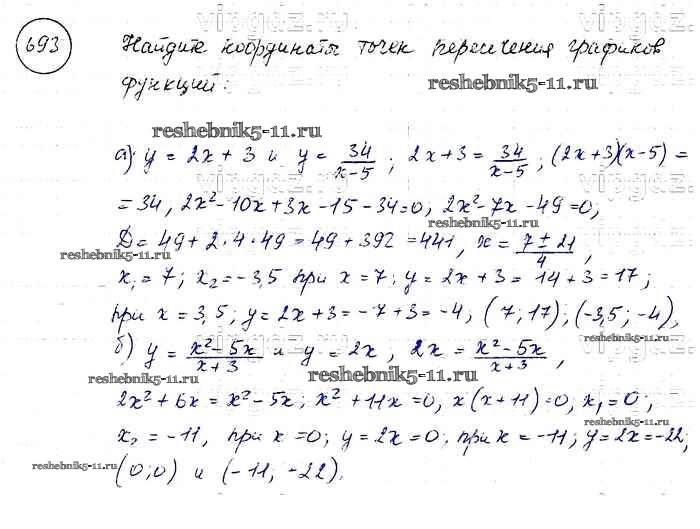 693 Найдите координаты точек пересечения графиков
функций:
reshebnik5-11.ru
reshebnik5-11.ru
а) y = 2x + 3 и y = 34/(x-5); 2x+3 = 34/(x-5); (2x+3)(x-5) =
= 34, 2x² - 10x + 3x - 15 - 34 = 0, 2x² - 7x - 49 = 0,
reshebnik5-11.ru
D = 49 + 2·4·49 = 49 + 392 = 441, x = (7 ± 21)/4,
reshebnik5-11.ru
x₁ = 7; x₂ = -3,5 при x = 7: y = 2x + 3 = 14 + 3 = 17;
при x = 3,5; y = 2x + 3 = -7 + 3 = -4, (7; 17); (-3,5; -4),
б) y = (x² - 5x)/(x+3) и y = 2x, 2x = (x² - 5x)/(x+3),
reshebnik5-11.ru
reshebnik5-11.ru
reshebnik5-11.ru
2x² + 6x = x² - 5x; x² + 11x = 0, x(x+11) = 0, x₁ = 0;
reshebnik5-11.ru
x₂ = -11, при x = 0; y = 2x = 0; при x = -11; y = 2x = -22;
reshebnik5-11.ru
reshebnik5-11.ru
(0; 0) и (-11; -22).